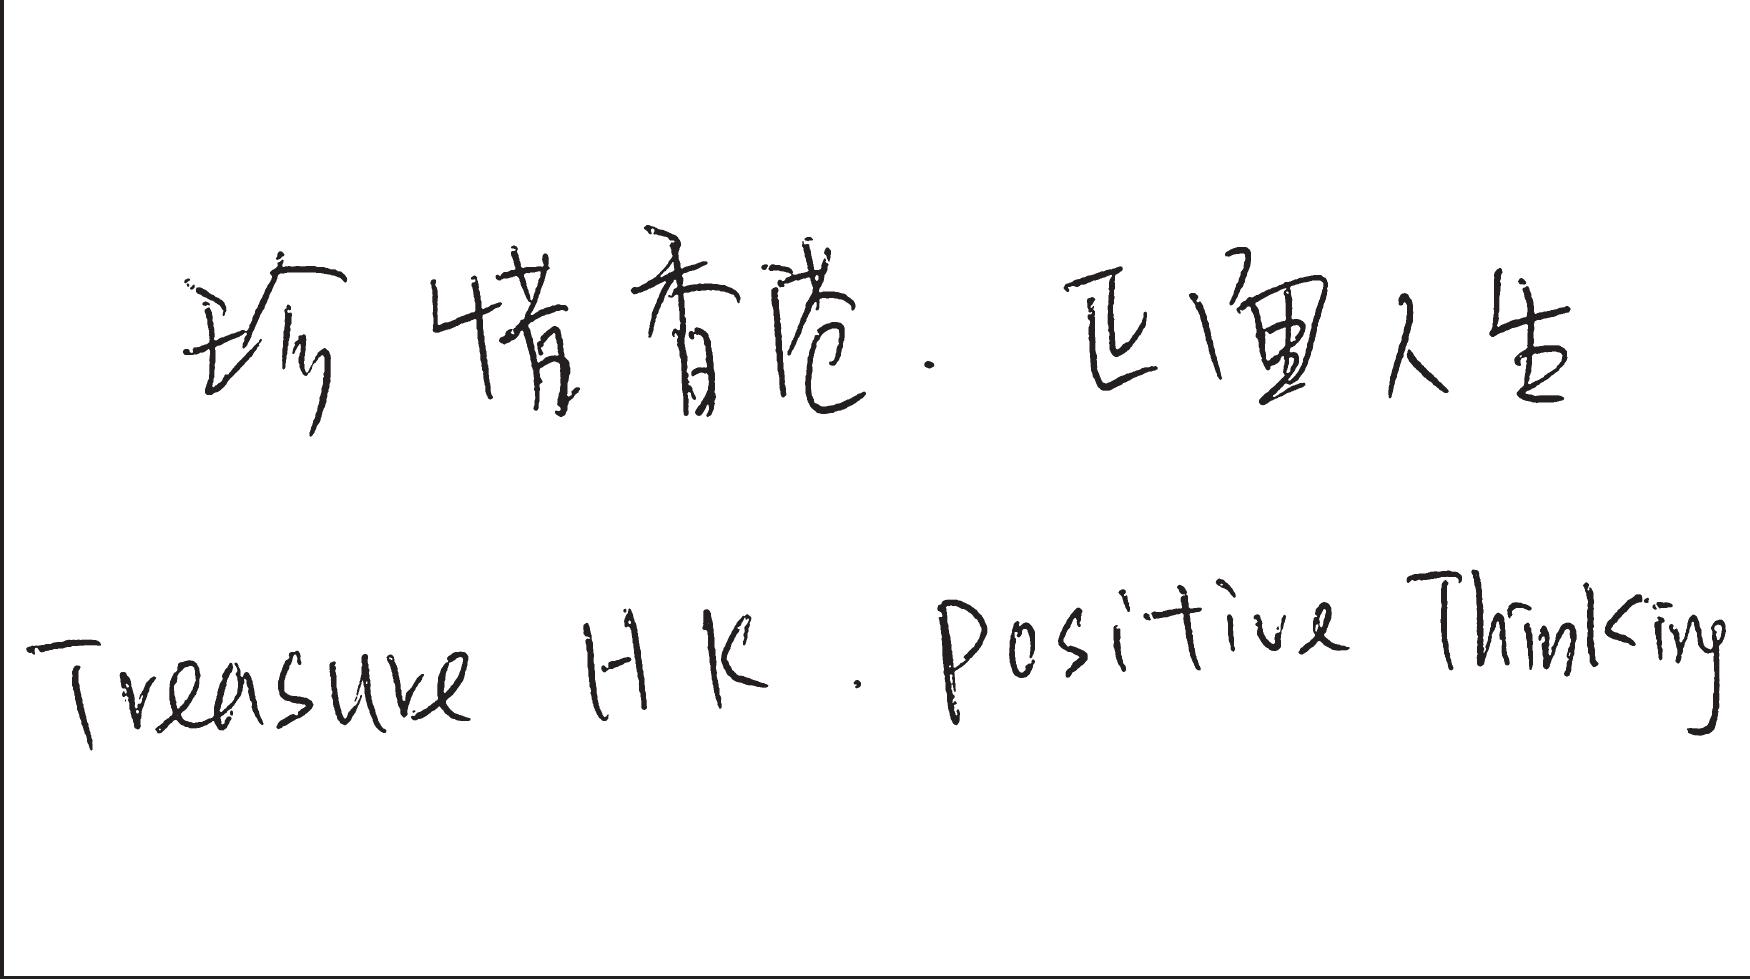 珍惜香港．正面人生
Treasure HK. Positive Thinking